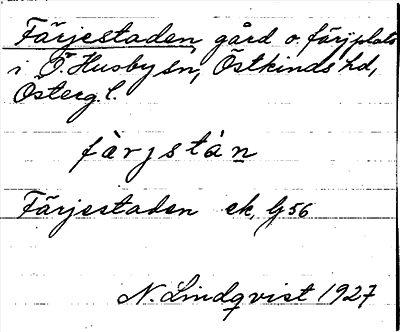 Färjestaden, gård o. färjplats
i Ö. Husby sn, Östkinds hd,
Österg. l.
fàrjstàn
Färjestaden ek. G 56
N. Lindqvist 1927